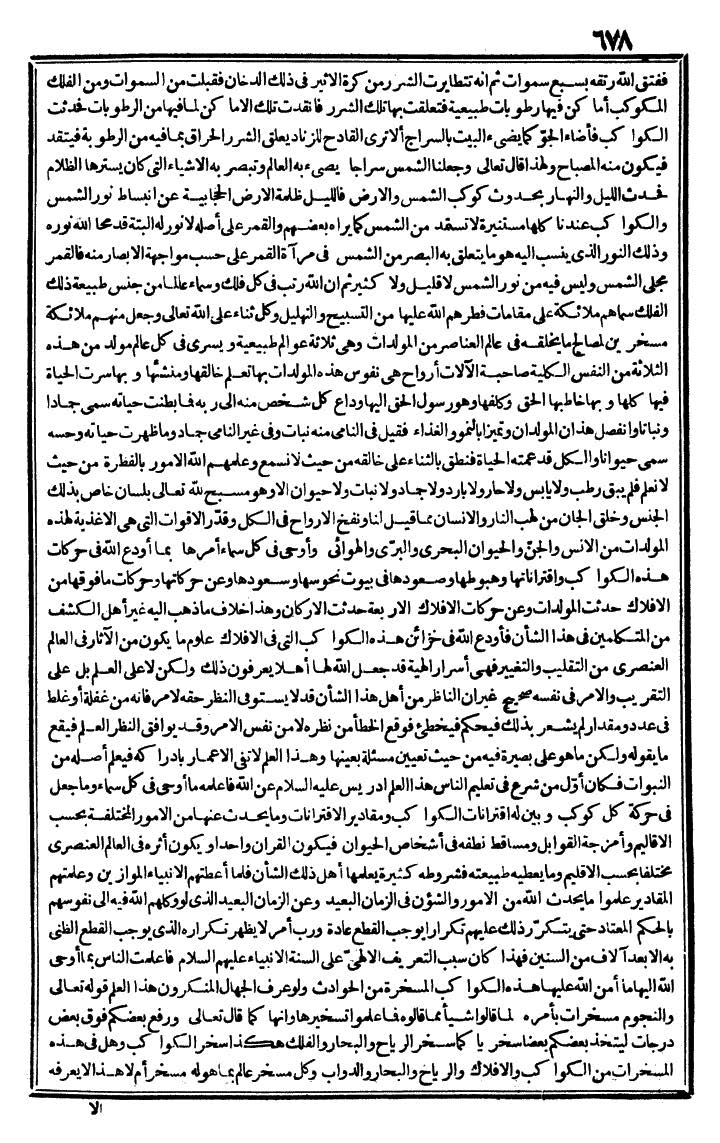 ٦٧٨
ففتق الله رتقه بسبع سموات ثم انه تتطايرت الشرر من كرة الاثير فى ذلك الدخان فقبلت من السموات ومن الفلك
المكوكب أما كن فيها رطوبات طبيعية فتعلقت بها تلك الشرر فانقدت تلك الاما كن لما فيها من الرطوبات فحدثت
الكوا كب فأضاء الجوّ كما يضىء البيت بالسراج ألا ترى القادح للزناد يعلق الشرر الحراق بما فيه من الرطوبة فيتقد
فيكون منه المصباح ولهذا قال تعالى وجعلنا الشمس سراجا يضىء به العالم وتبصر به الاشياء التى كان يسترها الظلام
فحدث الليل والنهار بحدوث كوكب الشمس والارض فالليل ظلمة الارض الحجابية عن انبساط نور الشمس
والكوا كب عندنا كلها مستنيرة لا تستمد من الشمس كما يراه بعضهم والقمر على أصله لا نور له البتة قد محا الله نوره
وذلك النور الذى ينسب اليه هو ما يتعلق به البصر من الشمس فى مرآة القمر على حسب مواجهة الابصار منه فالقمر
مجلى الشمس وليس فيه من نور الشمس لا قليل ولا كثير ثم ان الله رتب فى كل فلك وسماء عالما من جنس طبيعة ذلك
الفلك سماهم ملائكة على مقامات فطرهم الله عليها من التسبيح والتهليل وكل ثناء على الله تعالى وجعل منهم ملائكة
مسخرين لمصالح ما يخلقه فى عالم العناصر من المولدات وهى ثلاثة عوالم طبيعية ويسرى فى كل عالم مولد من هذه
الثلاثة من النفس الكلية صاحبة الآلات أرواح هى نفوس هذه المولدات بها تعلم خالقها ومنشئها وبها سرت الحياة
فيها كلها وبها خاطبها الحق وكلفها وهو رسول الحق اليها وداع كل شخص منه الى ربه فما بطنت حياته سمى جمادا
ونباتا وانفصل هذان المولدان وتميزا بالنمو والغذاء فقيل فى النامى منه نبات وفى غير النامى جماد وما ظهرت حياته وحسه
سمى حيوانا والكل قد عمته الحياة فنطق بالثناء على خالقه من حيث لا نسمع وعلمهم الله الامور بالفطرة من حيث
لا نعلم فلم يبق رطب ولا يابس ولا حار ولا بارد ولا جماد ولا نبات ولا حيوان الا وهو مسبح لله تعالى بلسان خاص بذلك
الجنس وخلق الجان من لهب النار والانسان مما قيل لنا ونفخ الارواح فى الكل وقدّر الاقوات التى هى الاغذية لهذه
المولدات من الانس والجنّ والحيوان البحرى والبرّى والهوائى وأوحى فى كل سماء أمرها بما أودع الله فى حركات
هذه الكوا كب واقتراناتها وهبوطها وصعودها فى بيوت نحوسها وسعودها وعن حركاتها وحركات ما فوقها من
الافلاك حدثت المولدات وعن حركات الافلاك الاربعة حدثت الاركان وهذا خلاف ما ذهب اليه غير أهل الكشف
من المتكلمين فى هذا الشأن فأودع الله فى خزائن هذه الكوا كب التى فى الافلاك علوم ما يكون من الآثار فى العالم
العنصرى من التقليب والتغيير فهى أسرار الهية قد جعل الله لها أهلا يعرفون ذلك ولكن لا على العلم بل على
التقريب والامر فى نفسه صحيح غير ان الناظر من أهل هذا الشأن قد لا يستوفى النظر حقه لامر فاته من غفلة أو غلط
فى عدد ومقدار لم يشعر بذلك فيحكم فيخطئ فوقع الخطأ من نظره لا من نفس الامر وقد يوافق النظر العلم فيقع
ما يقوله ولكن ما هو على بصيرة فيه من حيث تعيين مسئلة بعينها وهذا العلم لا تفى الاعمار بادرا كه فيعلم أصله من
النبوات فكان أوّل من شرع فى تعليم الناس هذا العلم ادريس عليه السلام عن الله فاعلمه ما أوحى فى كل سماء وما جعل
فى حركة كل كوكب وبين له اقترانات الكوا كب ومقادير الاقترانات وما يحدث عنها من الامور المختلفة بحسب
الاقاليم وأمزجة القوابل ومساقط نطفه فى أشخاص الحيوان فيكون القران واحدا ويكون أثره فى العالم العنصرى
مختلفا بحسب الاقليم وما يعطيه طبيعته فشروطه كثيرة يعلمها أهل ذلك الشأن فلما أعطتهم الانبياء الموازين وعلمتهم
المقادير علموا ما يحدث الله من الامور والشؤن فى الزمان البعيد وعن الزمان البعيد الذى لو وكلهم الله فيه الى نفوسهم
بالحكم المعتاد حتى يتكرّر ذلك عليهم تكرارا يوجب القطع عادة ورب أمر لا يظهر تكراره الذى يوجب القطع الظنى
به الا بعد آلاف من السنين فهذا كان سبب التعريف الالهىّ على السنة الانبياء عليهم السلام فاعلمت الناس بما أوحى
الله اليها ما أمن الله عليها هذه الكوا كب المسخرة من الحوادث ولو عرف الجهال المنكرون هذا العلم قوله تعالى
والنجوم مسخرات بأمره لما قالوا شيأ مما قالوه فاعلموا تسخيرها وانها كما قال تعالى ورفع بعضكم فوق بعض
درجات ليتخذ بعضكم بعضا سخريا كما سخر الرياح والبحار والفلك هكذا سخر الكوا كب وهل فى هذه
المسخرات من الكوا كب والافلاك والرياح والبحار والدواب وكل مسخر عالم بما هو له مسخر أم لا هذا لا يعرفه
الا